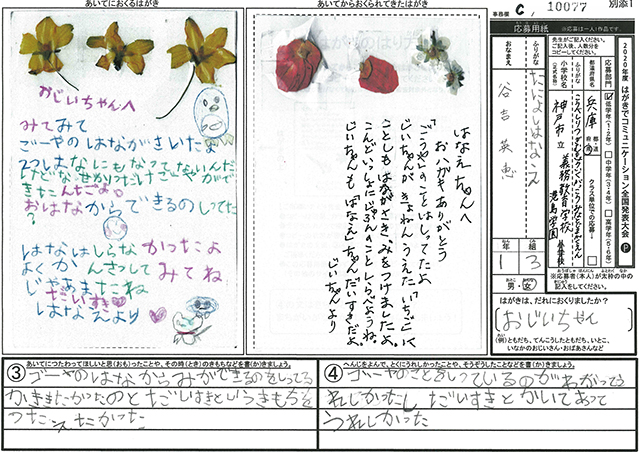 あいてにおくるはがき
おじいちゃんへ
みてみて
ごーやのはながさいたよ
はなにもなってないんだ
けどな
きた
おはなからできるのしってた
?
はなはしらなかったよ
よくかんさつしてみてね
じゃあまたね
だいすき
はなえより
あいてからおくられてきたはがき
はなえちゃんへ
おハガキありがとう
ごうやのことはしってたよ
じいちゃんがきょねんうえた
ことしもはながさき、みをつけましたよ。
こんどいっしょに
じいちゃんもはなえちゃんだいすきだよ。
じいちゃんより
事務局 C / 10077
別添1
応募用紙
※応募は一人1作品です。
2020年度 はがきでコミュニケーション全国発表大会 P
先生がご記入ください。
ご記入後、人数分を
コピーしてください。
応募部門
低学年(1・2年)
中学年(3・4年)
高学年(5・6年)
都道府県名
兵庫
都・道
府・県
クラス単位での応募:
ふりがな
小学校名
(正式名称)
神戸市立義務教育学校港島学園
養学校
ふりがな
たによしはなえ
おなまえ
谷吉英恵
年 組
1 3
男・女
※応募者(本人)が太枠の中の
記入をしてください。
はがきは、だれにおくりましたか?
おじいちゃん
(例)ともだち、てんこうしたともだち、いとこ、
いなかのおじいさん・おばあさんなど
③ あいてにつたわってほしいと思(おも)ったことや、その時(とき)のきもちなどを書(か)きましょう。
ゴーヤのはなからみができるのをしってる
かききたかったのとだいすきというきもちを
つたえたかった
④ へんじをよんで、とくにうれしかったことや、そうぞうしたことなどを書(か)きましょう。
ゴーヤのことをしっているのがわかってう
れしかったしだいすきとかいてあって
うれしかった